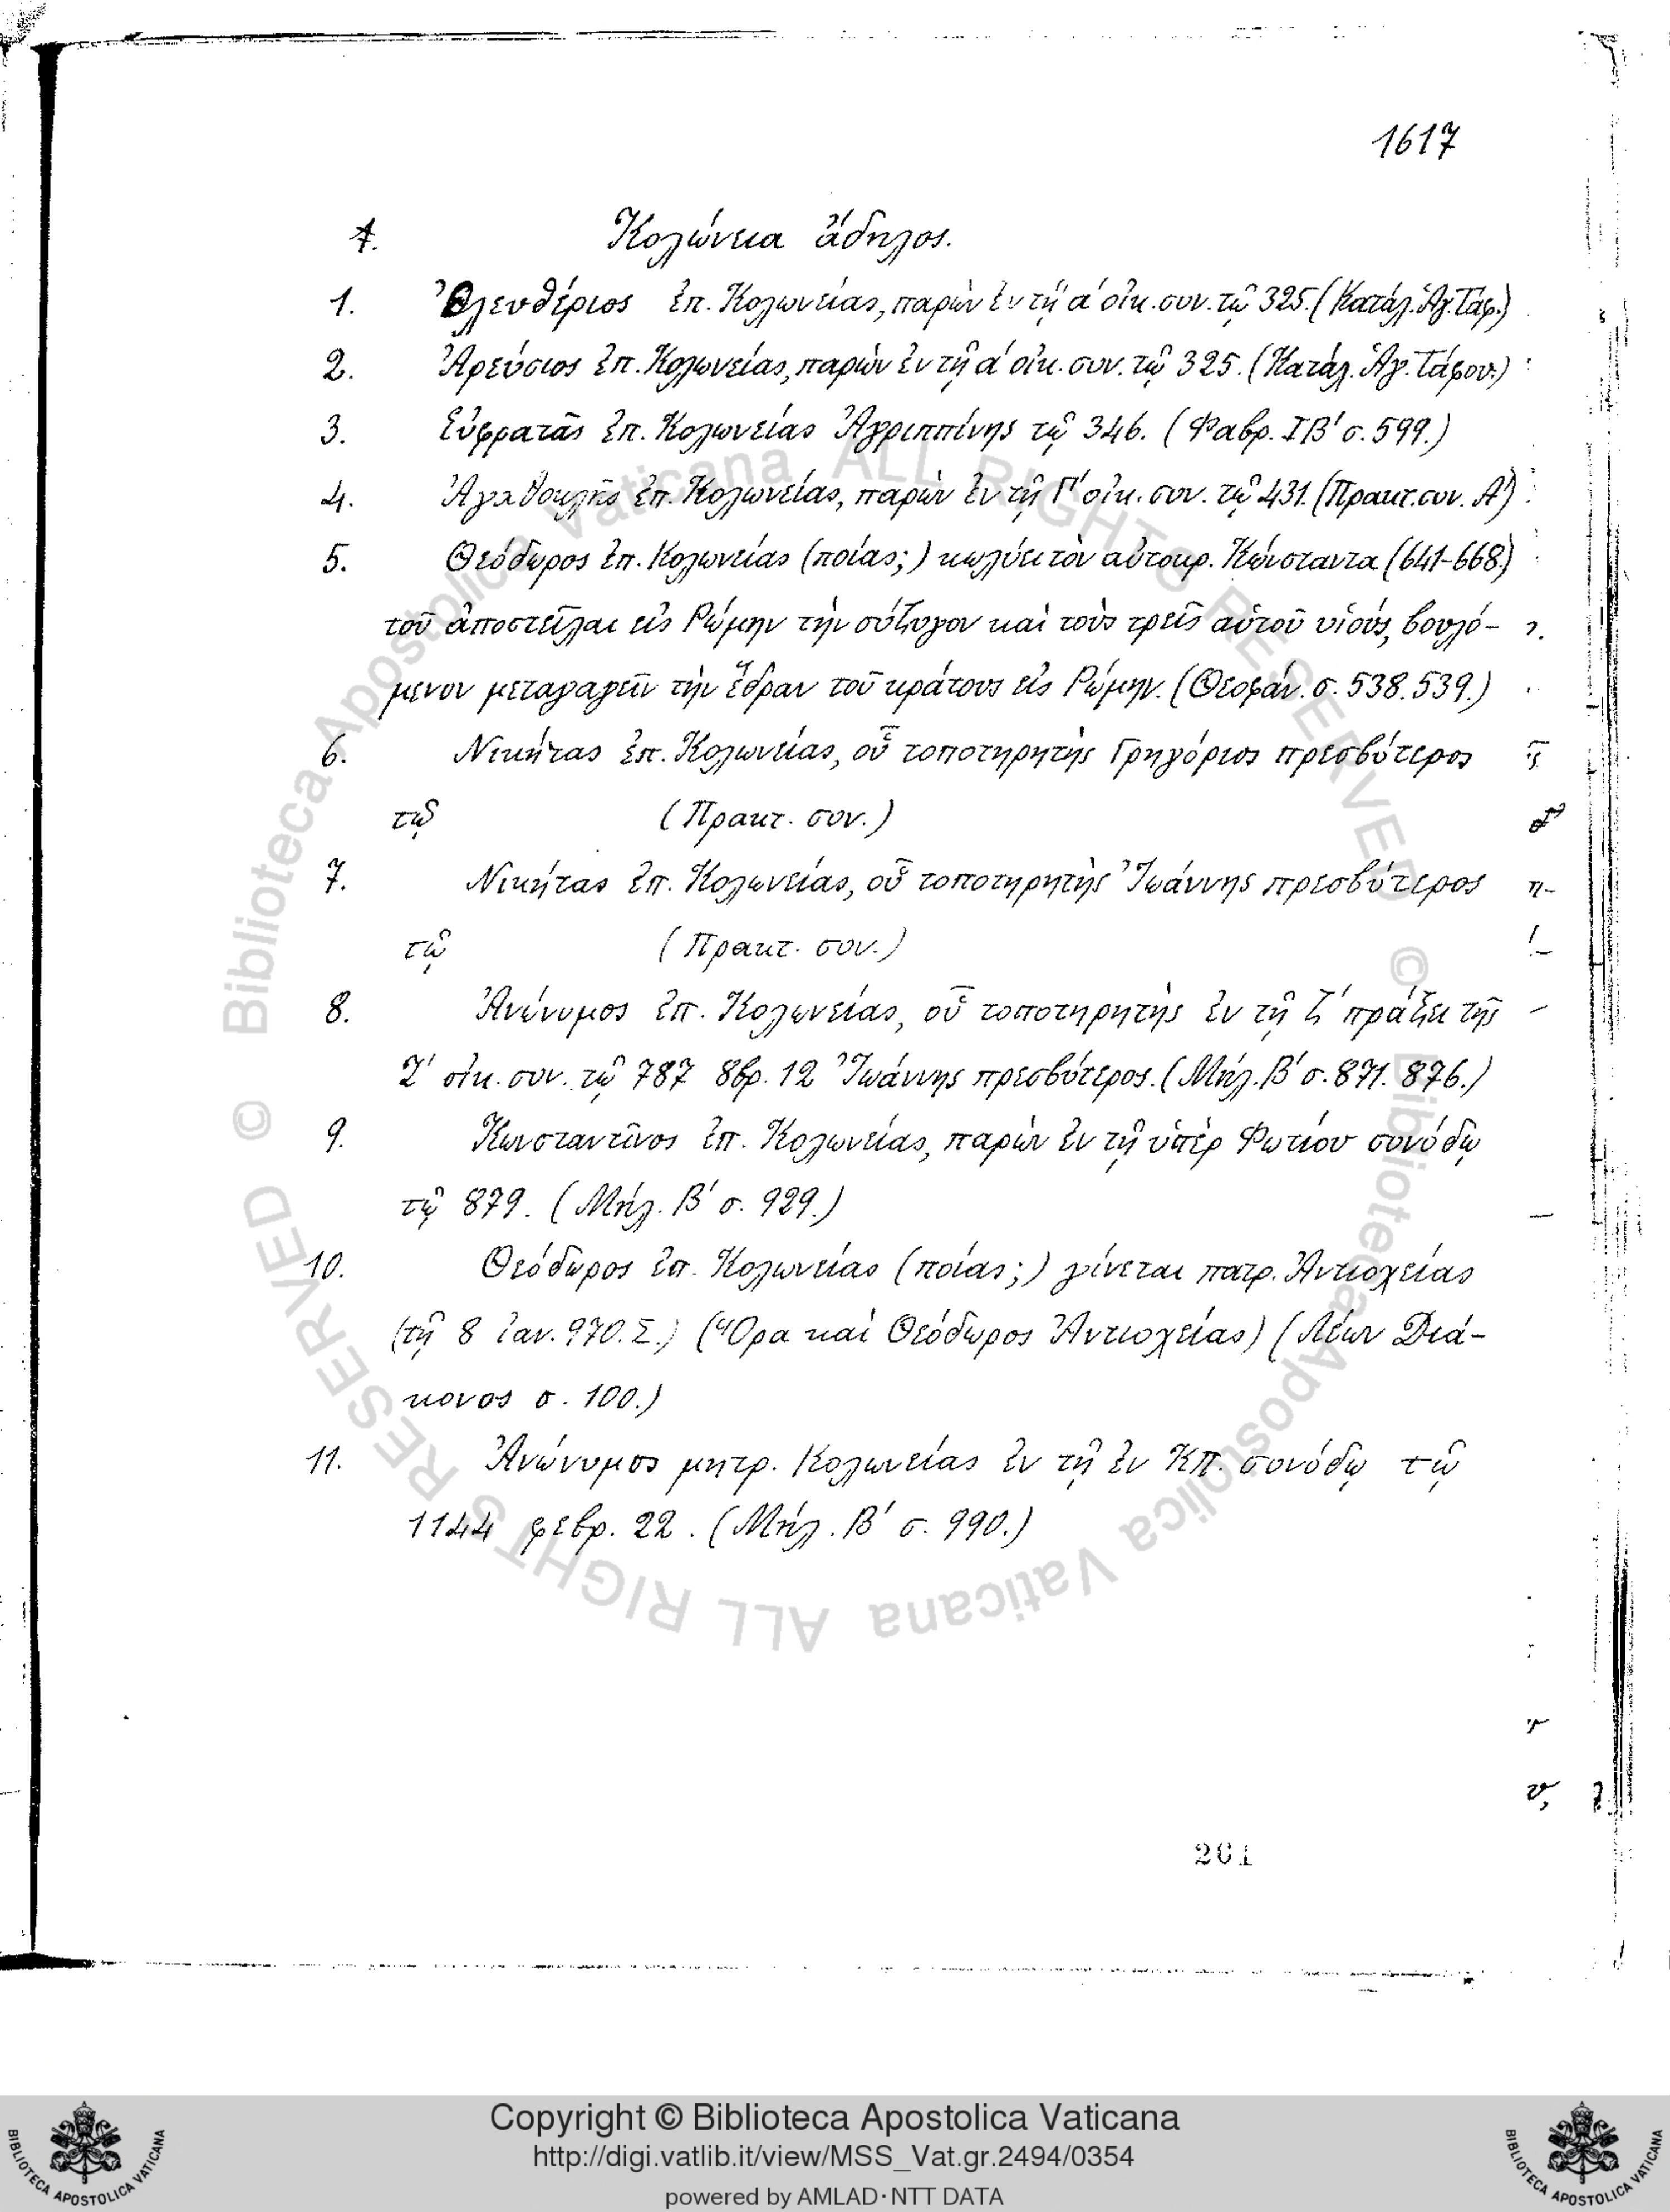 1617
Κολώνεια ἄδηλος.
1. Ἐλευθέριος ἐπ. Κολωνείας, παρὼν ἐν τῇ α΄ οἰκ. συν. τῷ 325. (Κατάλ. Ἁγ. Τάφ.)
2. Ἀρεύσιος ἐπ. Κολωνείας, παρὼν ἐν τῇ α΄ οἰκ. συν. τῷ 325. (Κατάλ. Ἁγ. Τάφου.)
3. Εὐφρατᾶς ἐπ. Κολωνείας Ἀγριππίνης τῷ 346. (Φαβρ. ΙΒ΄ σ. 599.)
4. Ἀγαθοκλῆς ἐπ. Κολωνείας, παρὼν ἐν τῇ Γ΄ οἰκ. συν. τῷ 431. (Πρακτ. συν. Α)
5. Θεόδωρος ἐπ. Κολωνείας (ποίας;) κωλύει τὸν αὐτοκρ. Κώνσταντα (641-668)
τοῦ ἀποστεῖλαι εἰς Ῥώμην τὴν σύζυγον καὶ τοὺς τρεῖς αὐτοῦ υἱούς, βουλό-
μενον μεταγαγεῖν τὴν ἕδραν τοῦ κράτους εἰς Ῥώμην. (Θεοφάν. σ. 538. 539.)
6. Νικήτας ἐπ. Κολωνείας, οὗ τοποτηρητὴς Γρηγόριος πρεσβύτερος
τῷ (Πρακτ. συν.)
7. Νικήτας ἐπ. Κολωνείας, οὗ τοποτηρητὴς Ἰωάννης πρεσβύτερος
τῷ (Πρακτ. συν.)
8. Ἀνώνυμος ἐπ. Κολωνείας, οὗ τοποτηρητὴς ἐν τῇ ζ΄ πράξει τῆς
Ζ΄ οἰκ. συν. τῷ 787 8βρ. 12 Ἰωάννης πρεσβύτερος. (Μήλ. Β΄ σ. 871. 876.)
9. Κωνσταντῖνος ἐπ. Κολωνείας, παρὼν ἐν τῇ ὑπὲρ Φωτίου συνόδῳ
τῷ 879. (Μήλ. Β΄ σ. 929.)
10. Θεόδωρος ἐπ. Κολωνείας (ποίας;) γίνεται πατρ. Ἀντιοχείας
(τῇ 8 ἰαν. 970. Σ.) (Ὅρα καὶ Θεόδωρος Ἀντιοχείας) (Λέων Διά-
κονος σ. 100.)
11. Ἀνώνυμος μητρ. Κολωνείας ἐν τῇ ἐν Κπ. συνόδῳ τῷ
1144 φεβρ. 22. (Μήλ. Β΄ σ. 990.)
201
© Biblioteca Apostolica Vaticana ALL RIGHTS RESERVED © Biblioteca Apostolica Vaticana ALL RIGHTS RESERVED
Copyright © Biblioteca Apostolica Vaticana
http://digi.vatlib.it/view/MSS_Vat.gr.2494/0354
powered by AMLAD·NTT DATA
BIBLIOTECA APOSTOLICA VATICANA
BIBLIOTECA APOSTOLICA VATICANA